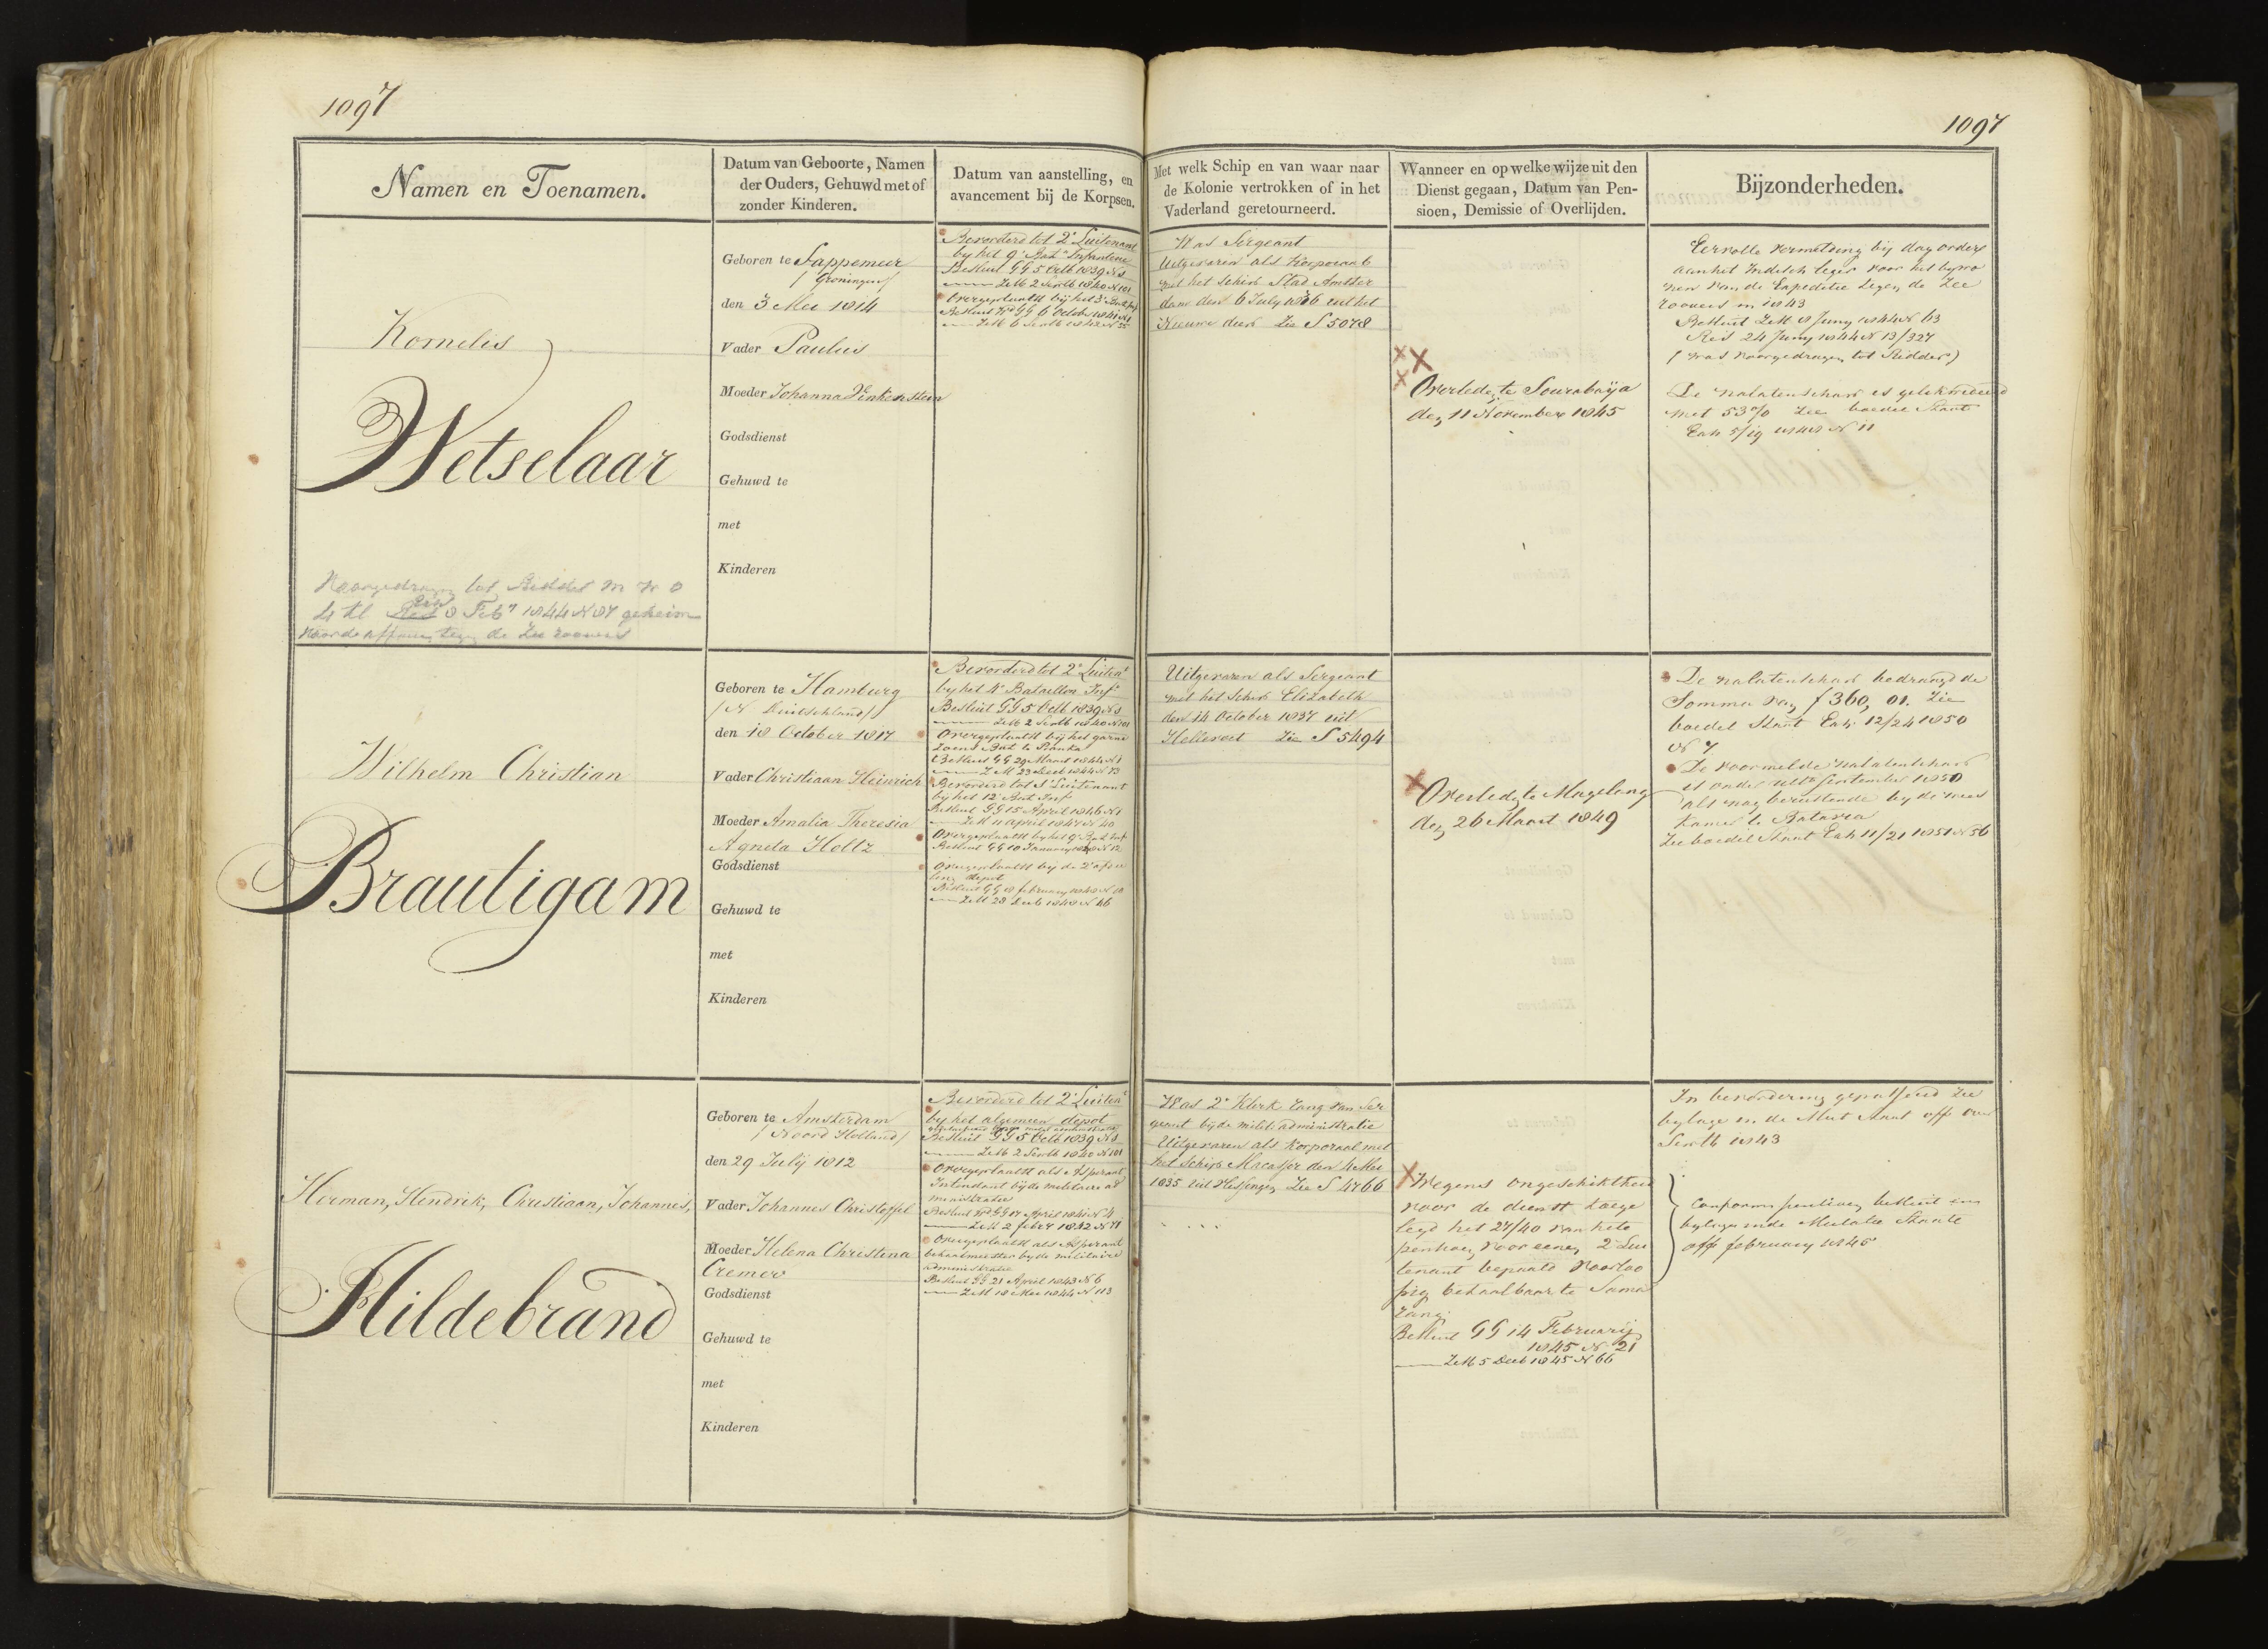 1097
1097
Namen en Toenamen.
Datum van Geboorte, Namen
der Ouders, Gehuwd met of
zonder Kinderen.
Datum van aanstelling, en
avancement bij de Korpsen.
Met welk Schip en van waar naar
de Kolonie vertrokken of in het
Vaderland geretourneerd.
Wanneer en op welke wijze uit den
Dienst gegaan, Datum van Pen-
sioen, Demissie of Overlijden.
Bijzonderheden.
Kornelis
Wetselaar
Voorgedragen tot Ridder M W O
4 kl Res 8 Feby 1844 N 87 geheim
de Zee roovers
Geboren te Sappemeer
/ Groningen/
den 3 Mei 1814
Vader Paulus
Moeder Johanna Vinkenstein
Godsdienst
Gehuwd te
met
Kinderen
Bevorderd tot 2e Luitenant
by het 9e Bat. Infanterie
Besluit GG 5 Octb 1839 N 8
ZM 2 Septb 1840 N 101
Overgeplaatst bij het 3e Bat Inf
Besluit Wd GG 6 October 1841 N 1
ZM 6 Septb 1842 N 35
Was Sergeant
Uitgevaren als Korporaal
met het schip Stad Amster
dam den 6 July 1836 uit het
Nieuwe diep Zie S 5078
Overleden te Sourabaija
den 11 November 1845
Eervolle vermelding bij dag orders
aan het Indisch leger voor het bywo
nen van de Expeditie tegen de Zee
roovers in 1843
Besluit ZM 8 Juny 1844 N 63
Res 24 Juny 1844 N 13/327
( was voorgedragen tot Ridder)
De nalatenschap is gelikwideerd
met 53% Zie boedel Staat
Exh 5/19 1848 N 11
Wilhelm Christian
Brautigam
Geboren te Hamburg
/ N Duitschland/
den 18 October 1817
Vader Christiaan Heinrich
Moeder Amalia Theresia
Agneta Holtz
Godsdienst
Gehuwd te
met
Kinderen
Bevorderd tot 2e Luitent
by het 4e Bataillon Inf
Besluit GG 5 Octb 1839 N 8
ZM 2 Septb 1840 N 101
Overgeplaatst bij het garni
zoens Bat te Banka
Besluit GG 29 Maart 1844 N 1
ZM 23 Decb 1844 N 73
Bevorderd tot 1e Luitenant
bij het 12e Bat Inf
Besluit GG 15 April 1846 N 1
ZM 11 april 1847 N 40
Overgeplaatst by het 9e Bat Inf
Besluit GG 10 January 1848 N 12
Overgeplaatst bij de 2e afdee
ling depot
Besluit GG 8 february 1848 N 18
ZM 28 Decb 1848 N 46
Uitgevaren als Sergeant
met het schip Elizabeth
den 14 October 1837 uit
Hellevoet Zie S 5494
Overleden te Magelang
den 26 Maart 1849
De nalatenschap bedraagd de
Somma van f 360, 01. Zie
boedel Staat Exh 12/24 1850
N 7
De voormelde nalatenschap
is onder ulto September 1850
als nog berustende by de wees
kamer te Batavia
Zie boedel Staat Exh 11/21 1851 N 56
Herman, Hendrik, Christiaan, Johannes,
Hildebrand
Geboren te Amsterdam
/ Noord Holland/
den 29 July 1812
Vader Johannes Christoffel
Moeder Helena Christina
Cremer
Godsdienst
Gehuwd te
met
Kinderen
Bevorderd tot 2e Luitent
by het algemeen depot
Besluit GG 5 Octb 1839 N 8
ZM 2 Septb 1840 N 101
Overgeplaatst als Aspirant
Intendant bij de militaire ad
ministratie
Besluit Wd GG 17 April 1841 N 4
ZM 2 feber 1842 N 71
Overgeplaatst als Aspirant
betaalmeester by de militaire
administratie
Besluit GG 21 April 1843 N 6
ZM 18 Mei 1844 N 113
Was 2e Klerk rang van Ser
geant bij de milit administratie
Uitgevaren als Korporaal met
het Schip Macasser den 4 Mei
1835 uit Vlissingen Zie S 4766
Wegens ongeschiktheid
voor de dienst toege
legd het 27/40 van het
pensioen voor eenen 2e Lui
tenant bepaald voorloo
pig betaalbaar te Sama
rang
Besluit GG 14 February
1845 N 21
ZM 5 Decb 1845 N 66
In bevordering gepasseerd Zie
bylage in de Mut Staat off over
Septb 1843
besluit en
bylage in de Mutatie Staate
off february 1845